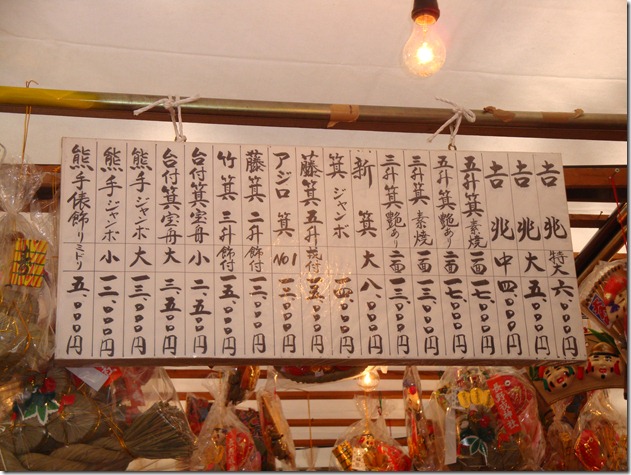 吉兆 特大 六、〇〇〇円
吉兆 大 五、〇〇〇円
吉兆 中 四、〇〇〇円
五升箕 素焼 一面 一七、〇〇〇円
五升箕 艶あり 二面 一七、〇〇〇円
三升箕 素焼 一面 一三、〇〇〇円
三升箕 艶あり 二面 一三、〇〇〇円
新箕 大 八、〇〇〇円
箕ジャンボ 一四、〇〇〇円
藤箕 五升 飾付 一五、〇〇〇円
アジロ箕 No1 一二、〇〇〇円
藤箕 二升 飾付 一二、〇〇〇円
竹箕 三升 飾付 一五、〇〇〇円
台付箕宝舟 小 二、五〇〇円
台付箕宝舟 大 三、五〇〇円
熊手ジャンボ 大 一三、〇〇〇円
熊手ジャンボ 小 一二、〇〇〇円
熊手俵飾りミドリ 五、〇〇〇円